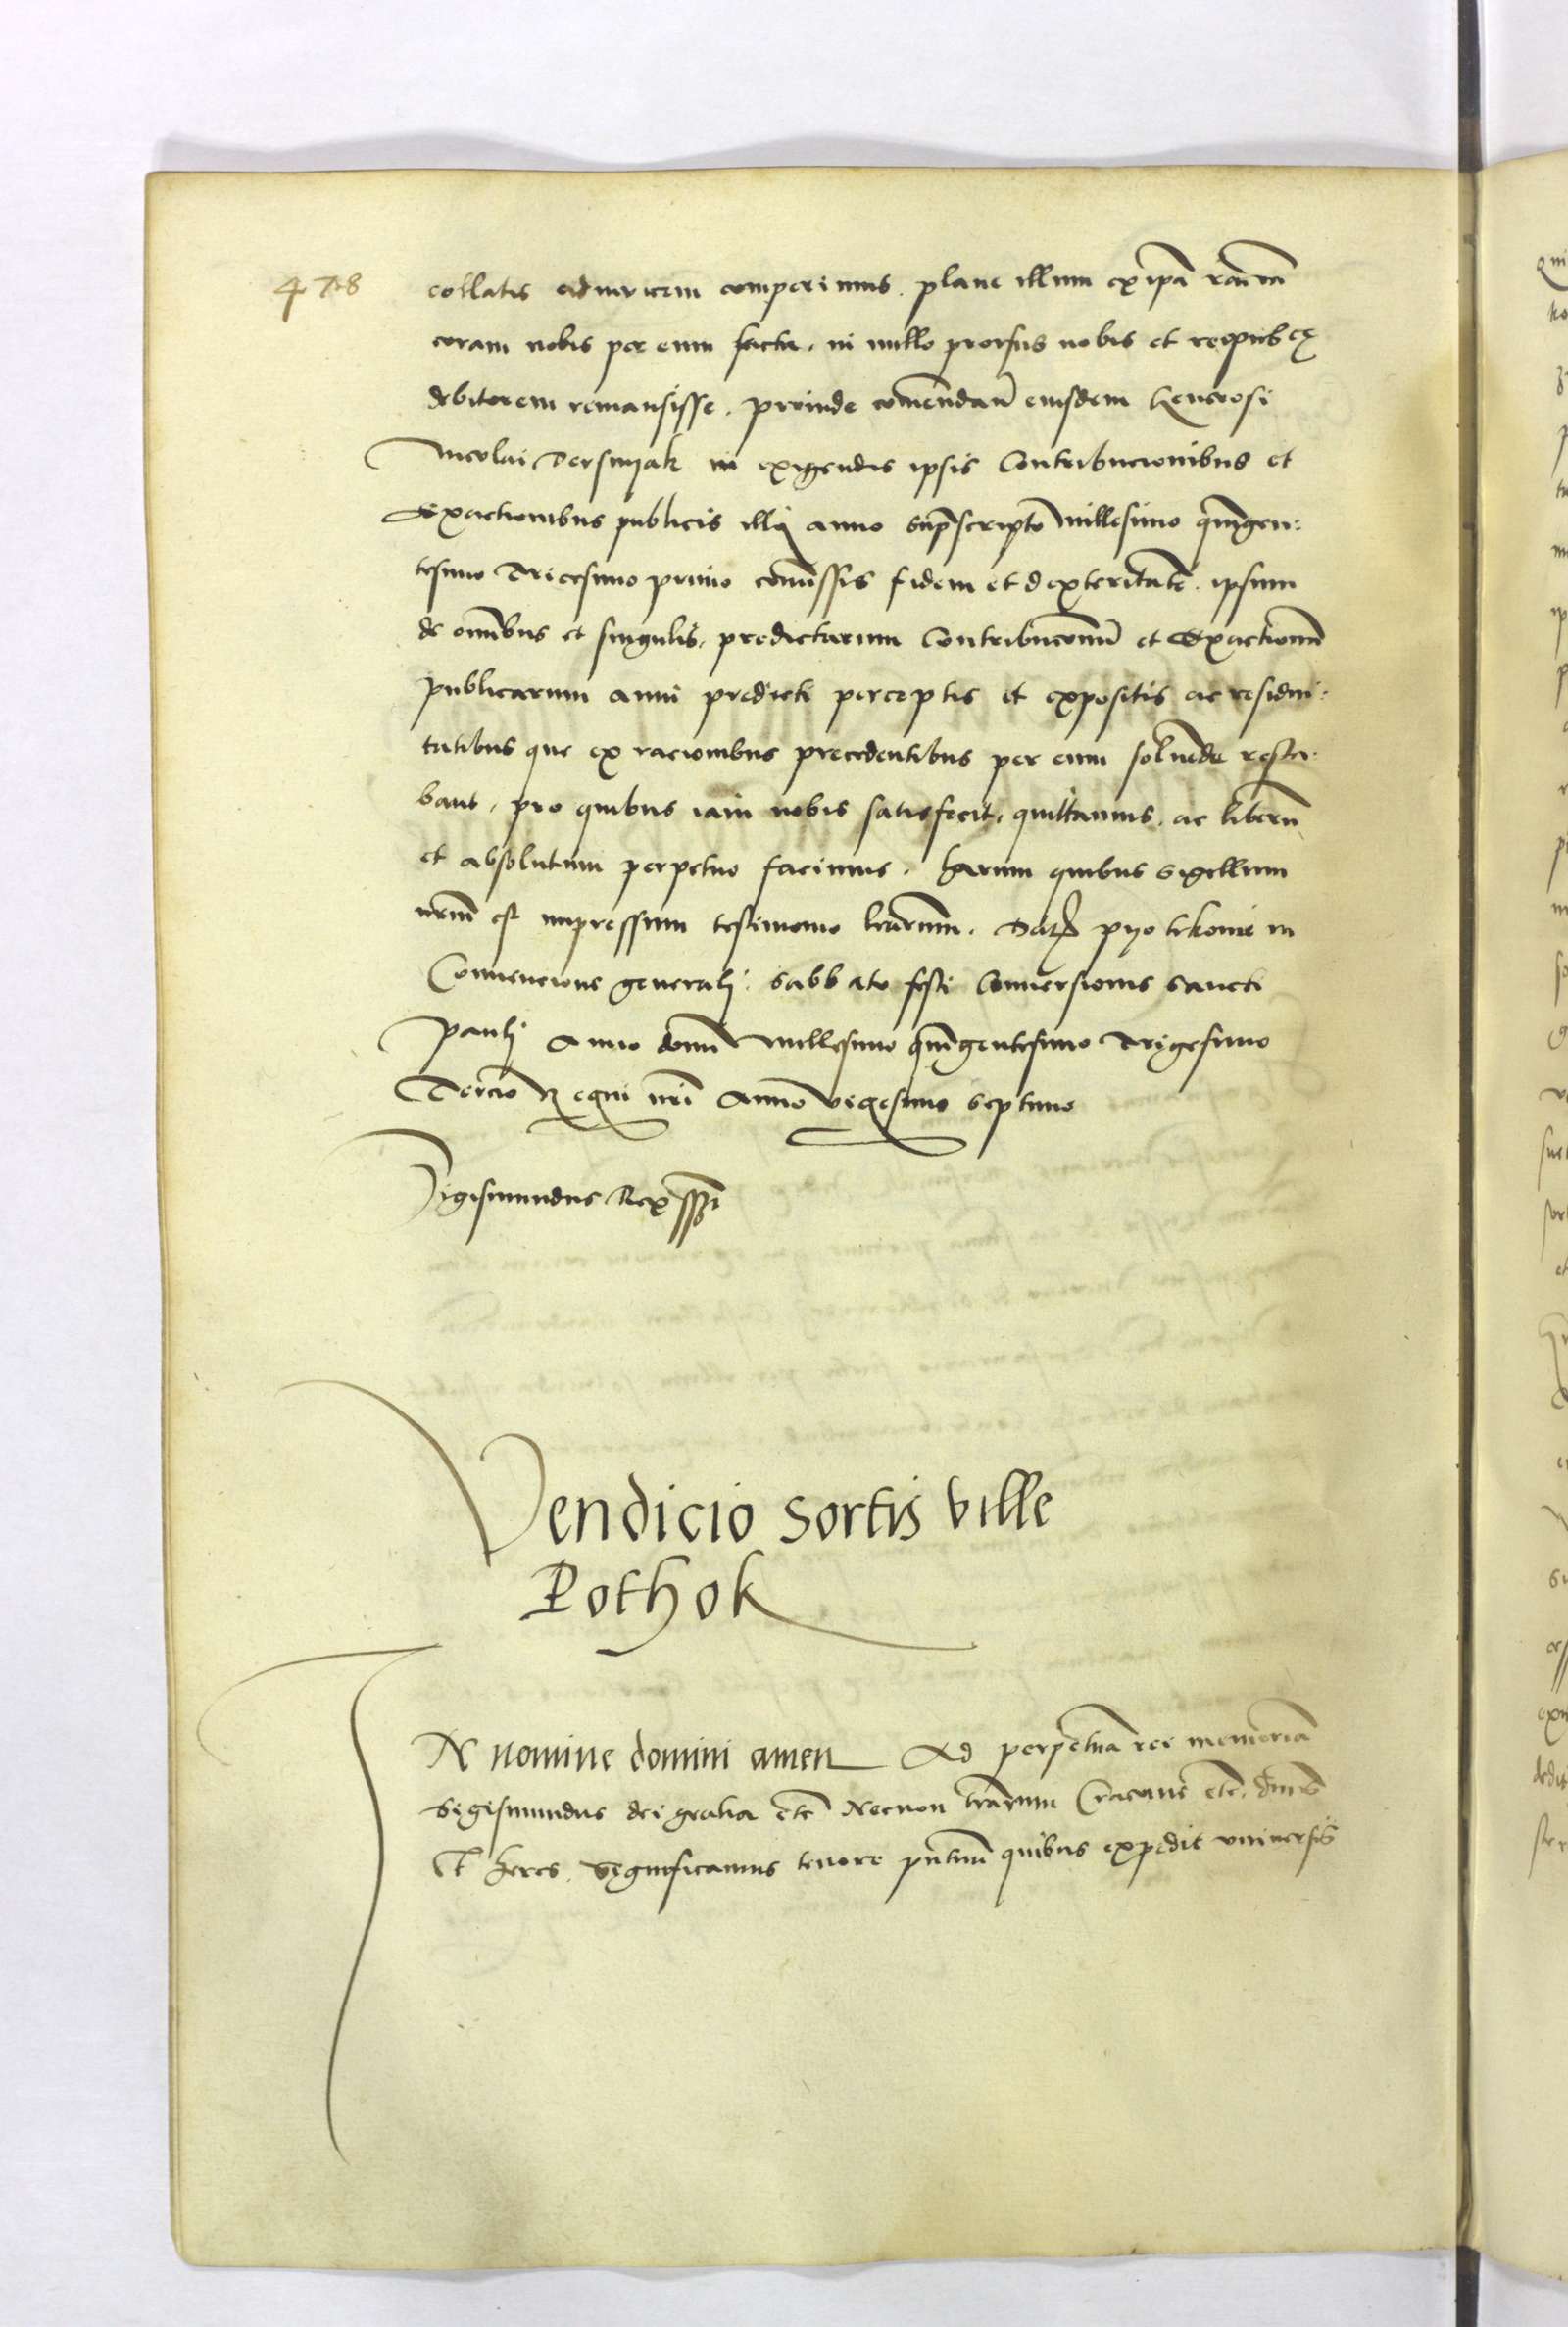 478
collatis adinvicem comperimus. plane illum ex ipā racōem
coram nobis per eum facta. in nullo prorsus nobis et reipub cę
debitorem remansisse. proinde comēndan̄ eiusdem Generosi
Nicolai Dersnyak in exigendis ipsis Contribucionibus et
Exactionibus publicis illi anno sup̄scripto Millesimo quīgen:
tesimo Tricesimo primo comīssis fidem et dexteritatē. ipsum
de omībus et singulis. predictarum Contribucionū et Exactionū
publicarum anni predicti perceptis et expositis ac residui:
tatibus que ex racionibus precedentibus per eum solvēda resta:
bant. pro quibus iam nobis satisfecit. quittamus. ac liberū
et absolutum perpetuo facimus. harum quibus sigillum
nrm̄ est impressum testimonio lrārum. Dat̄ pyotrkovie in
Convencione generali: Sabbato festi Conversionis sancti
Pauli Anno domī Millesimo quīngentesimo Trigesimo
Tercio Regni nri Anno vigesimo septimo
Sigismundus Rex sst
Vendicio sortis ville
Pothok
IN nomine domini amen Ad perpetuā rei memoriā
Sigismundus dei gratia etc̄ Necnon trārum Cracovie etc̄. dn̄s
Et heres. Significamus tenore pn̄tium quibus expedit universis